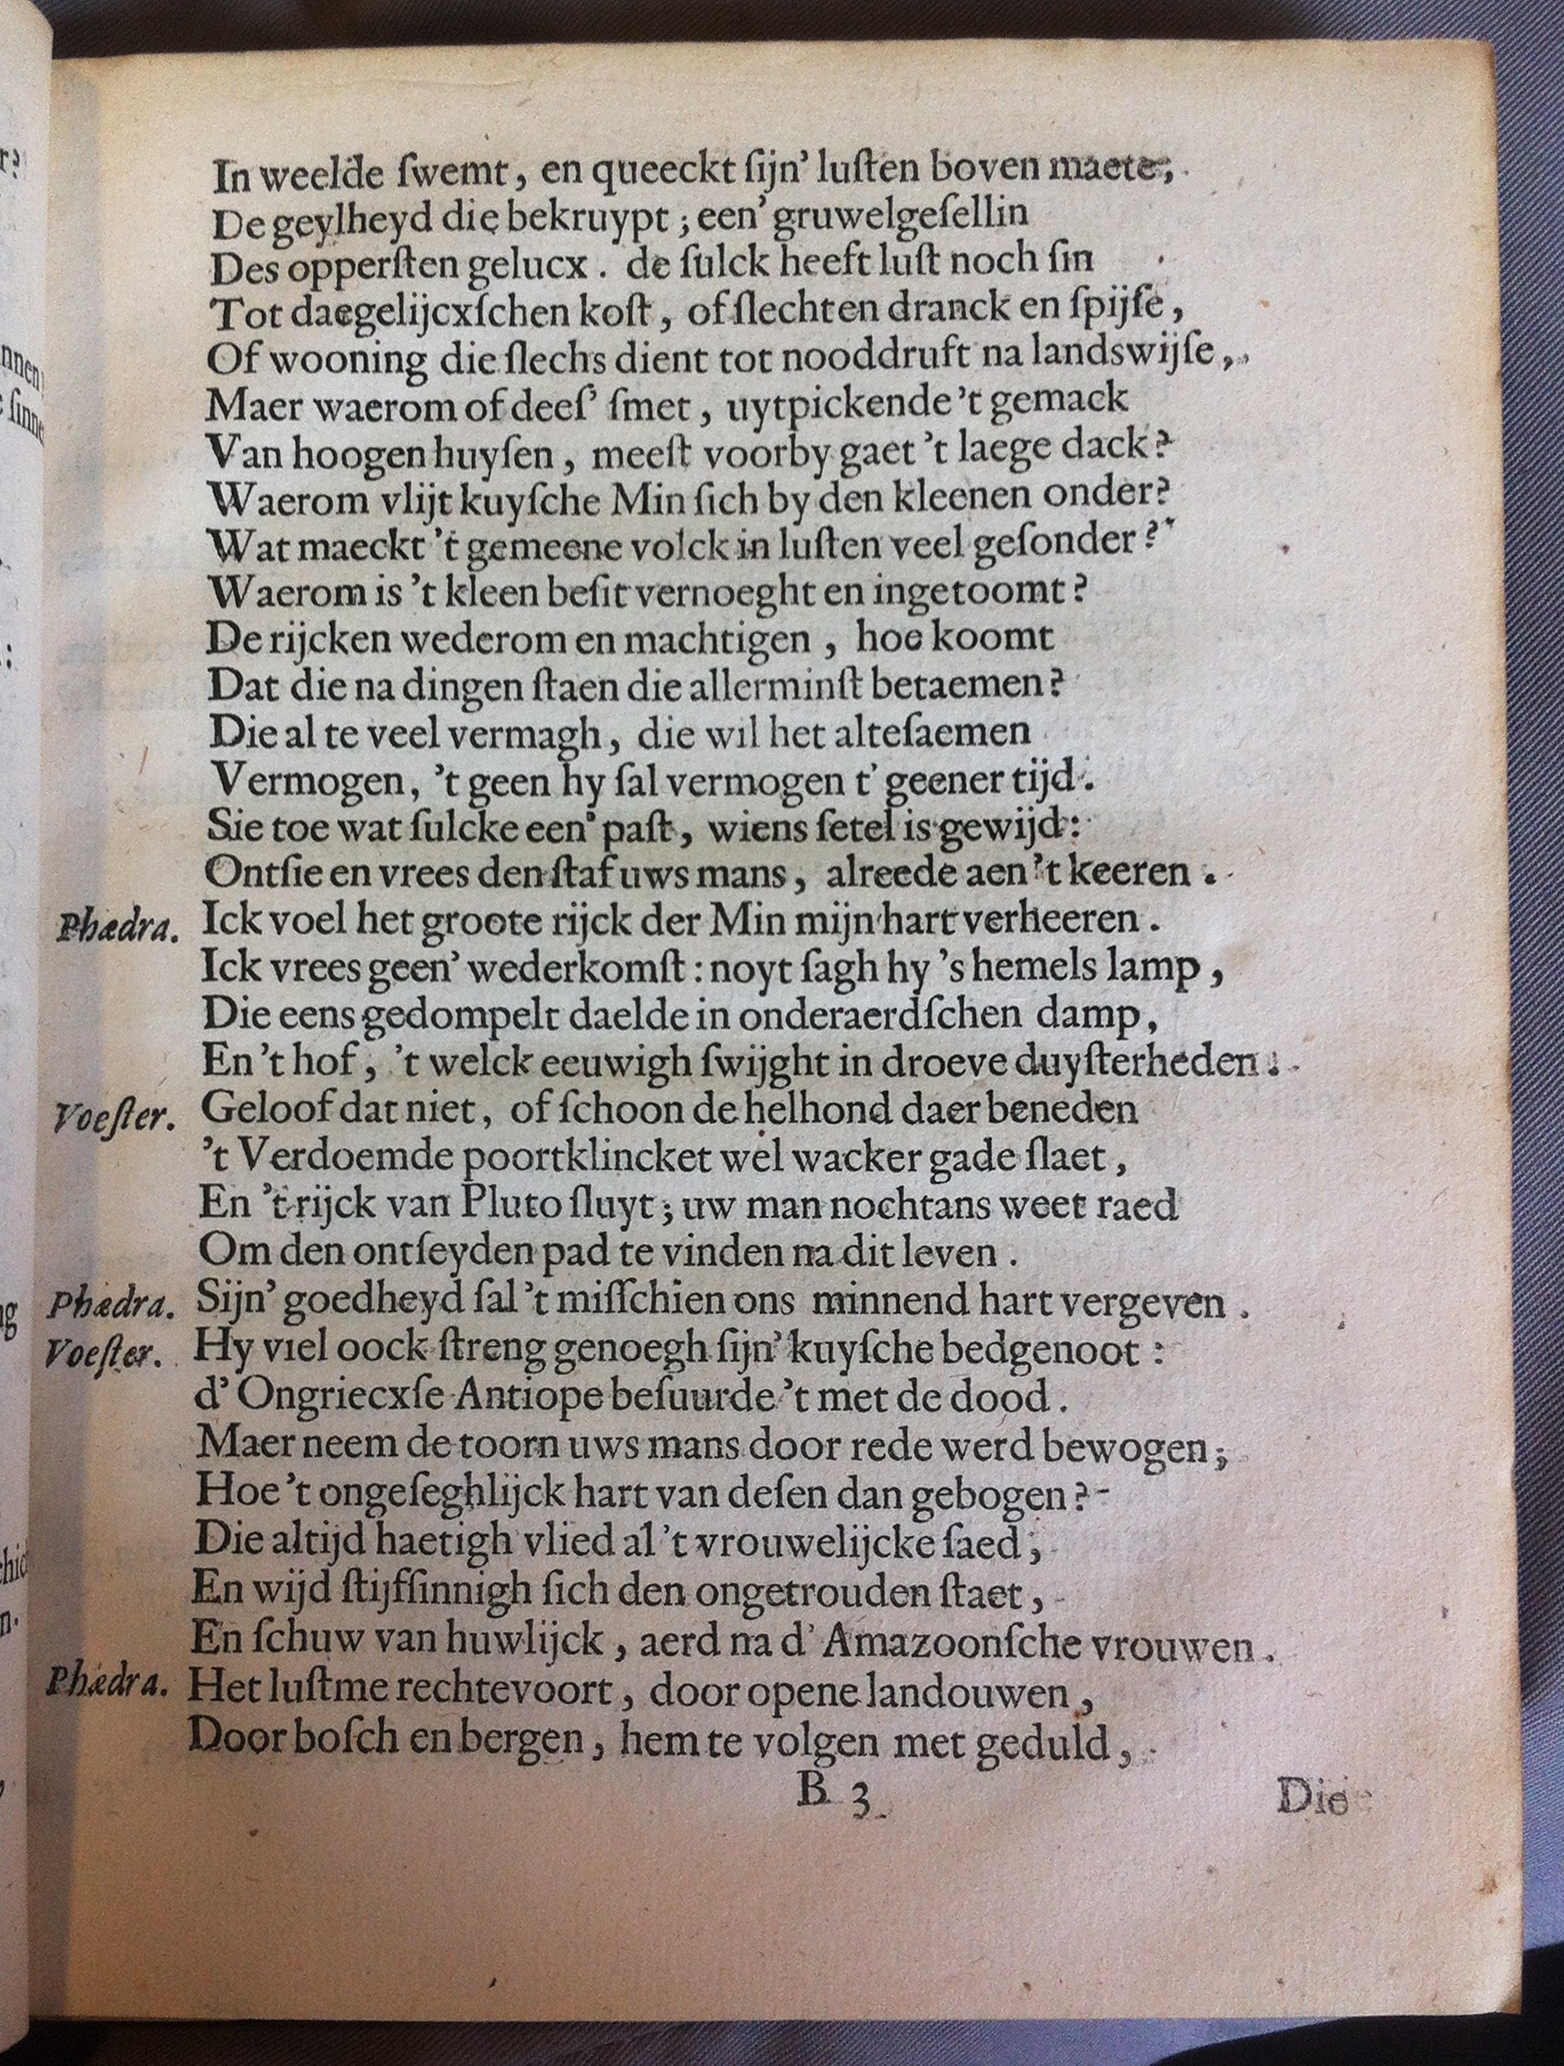 In weelde ſwemt, en queeckt ſijn' luſten boven maete;
De geylheyd die bekruypt; een' gruwelgeſellin
Des opperſten gelucx. de ſulck heeft luſt noch ſin
Tot daegelijcxſchen koſt, of ſlechten dranck en ſpijſe,
Of wooning die ſlechs dient tot nooddruft na landswijſe,
Maer waerom of deeſ' ſmet, uytpickende 't gemack
Van hoogen huyſen, meeſt voorby gaet 't laege dack?
Waerom vlijt kuyſche Min ſich by den kleenen onder?
Wat maeckt 't gemeene volck in luſten veel geſonder?
Waerom is 't kleen beſit vernoeght en ingetoomt?
De rijcken wederom en machtigen, hoe koomt
Dat die na dingen ſtaen die allerminſt betaemen?
Die al te veel vermagh, die wil het alteſaemen
Vermogen, 't geen hy ſal vermogen t' geener tijd.
Sie toe wat ſulcke een' paſt, wiens ſetel is gewijd:
Ontſie en vrees den ſtaf uws mans, alreede aen 't keeren.
Phædra. Ick voel het groote rijck der Min mijn hart verheeren.
Ick vrees geen' wederkomſt: noyt ſagh hy 's hemels lamp,
Die eens gedompelt daelde in onderaerdſchen damp,
En 't hof, 't welck eeuwigh ſwijght in droeve duyſterheden.
Voeſter. Geloof dat niet, of ſchoon de helhond daer beneden
't Verdoemde poortklincket wel wacker gade ſlaet,
En 't rijck van Pluto ſluyt; uw man nochtans weet raed
Om den ontſeyden pad te vinden na dit leven.
Phædra. Sijn' goedheyd ſal 't miſſchien ons minnend hart vergeven.
Voeſter. Hy viel oock ſtreng genoegh ſijn' kuyſche bedgenoot:
d' Ongriecxſe Antiope beſuurde 't met de dood.
Maer neem de toorn uws mans door rede werd bewogen;
Hoe 't ongeſeghlijck hart van deſen dan gebogen?
Die altijd haetigh vlied al 't vrouwelijcke ſaed;
En wijd ſtijfſinnigh ſich den ongetrouden ſtaet,
En ſchuw van huwlijck, aerd na d' Amazoonſche vrouwen.
Phædra. Het luſt me rechtevoort, door opene landouwen,
Door boſch en bergen, hem te volgen met geduld,
B 3 Die